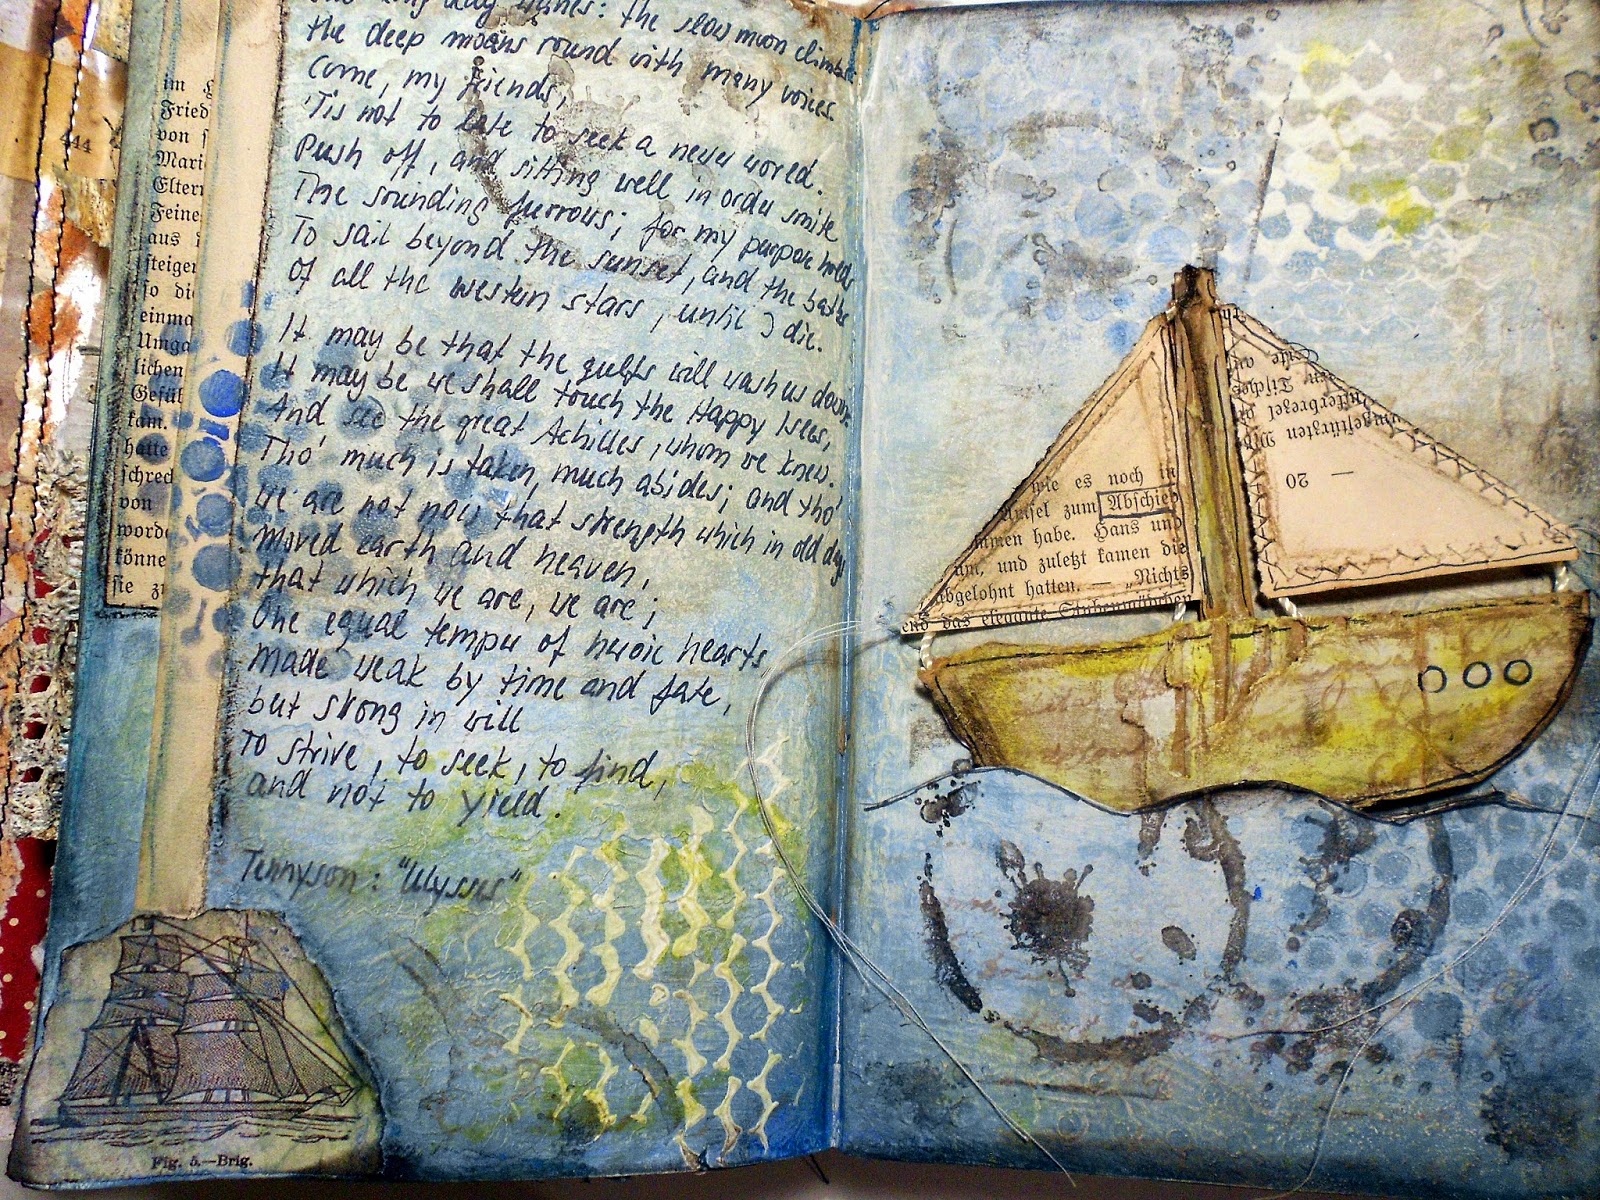 long day wanes: the slow moon climbs
the deep moans round with many voices.
Come, my friends,
'Tis not to late to seek a newer world.
Push off, and sitting well in order smite
The sounding furrows; for my purpose holds
To sail beyond the sunset, and the baths
Of all the western stars, until I die.
It may be that the gulfs will wash us down:
It may be we shall touch the Happy Isles,
And see the great Achilles, whom we knew.
Tho' much is taken, much abides; and tho'
we are not now that strength which in old days
Moved earth and heaven,
that which we are, we are;
One equal temper of heroic hearts
Made weak by time and fate,
but strong in will
To strive, to seek, to find,
and not to yield.
Tennyson: "Ulysses"
Fig. 5.—Brig.
444
im
Fried
von
Mari
Eltern
Feine
aus
steiger
so die
einma
Umga
lichen
Gefül
kam.
hatte
schrec
von
word
könne
sie z
wie es noch in
Amsel zum Abschied
kommen habe. Hans und
um, und zuletzt kamen die
abgelohnt hatten. — „Nichts
end das elegante Stubenmädchen
— 20